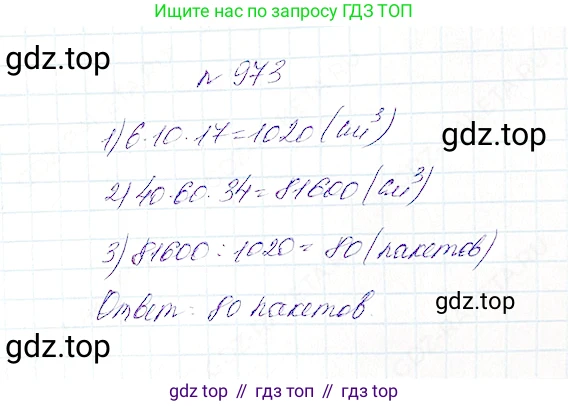 Ищите нас по запросу ГДЗ ТОП
gdz.top
№ 973
1) 6·10·17=1020 (см³)
gdz.top
2) 40·60·34=81600 (см³)
3) 81600:1020= 80 (пакетов)
Ответ: 80 пакетов.
gdz.top
gdz.top
gdz.top // гдз топ // гдз.топ